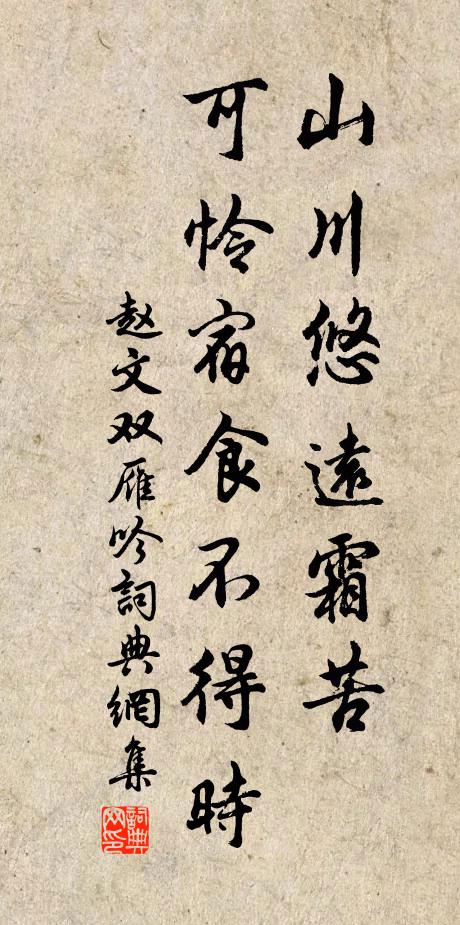 山川悠遠霜苦
可怜宿食不得時
赵文双雁吟詞典網集
詞典网印